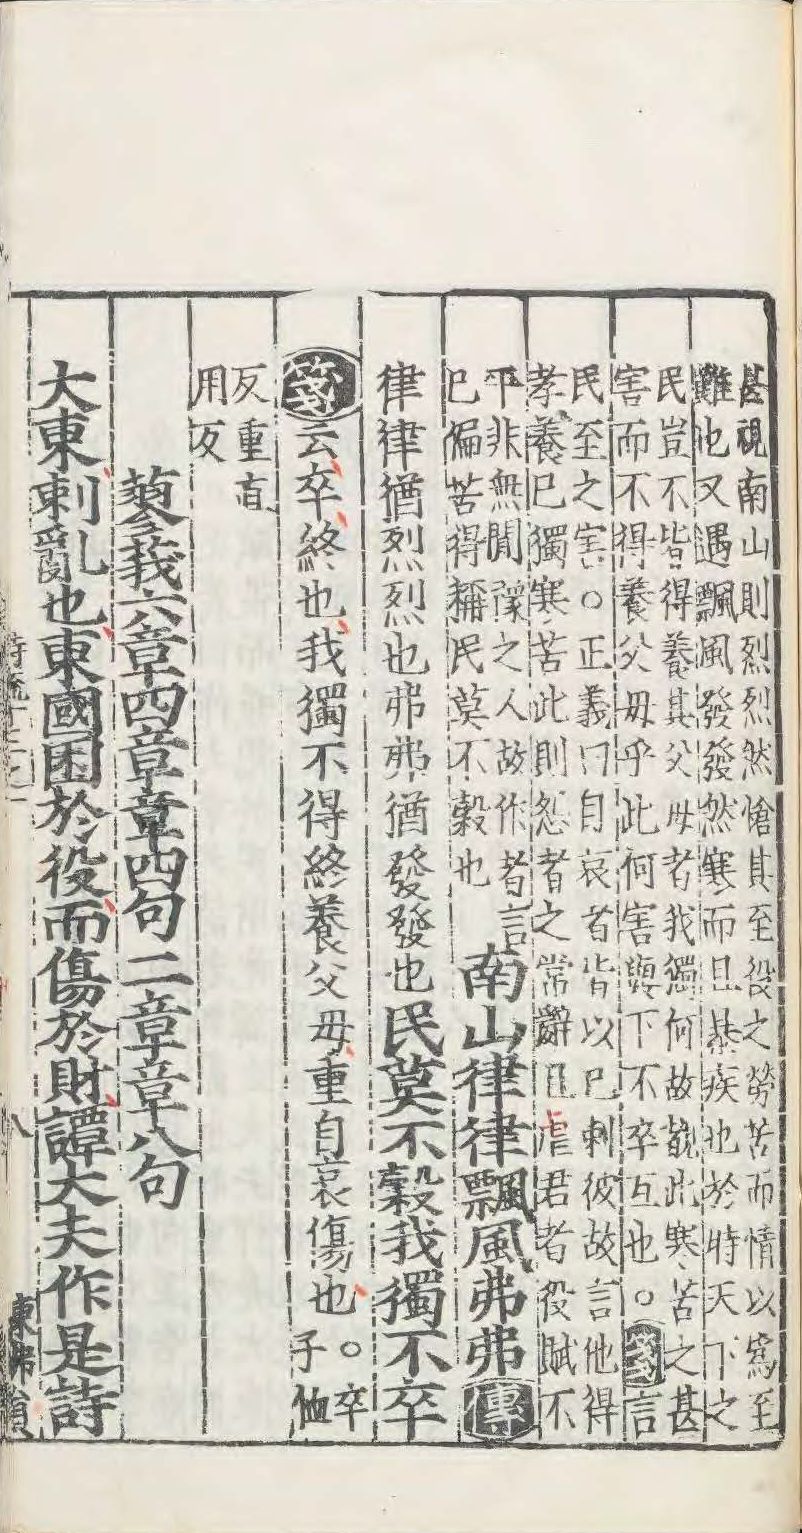 甚視南山則烈烈然愴其至役之勞苦而情以爲至
難也又遇飄風發發然寒而且暴疾也於時天下之
民豈不皆得養其父母者我獨何故覩此寒苦之甚
害而不得養父母乎此何害與下不卒互也○箋言
民至之害○正義曰自哀者皆以巳刺彼故言他得
孝養巳獨寒苦此則怨者之常辭且虐君者役賦不
平非無閒豫之人故作者言
巳偏苦得稱民莫不穀也
南山律律飄風弗弗傳
律律猶烈烈也弗弗猶發發也民莫不穀我獨不卒
箋云卒終也我獨不得終養父母重自哀傷也○卒
子恤
反重直
用反
蓼莪六章四章章四句二章章八句
大東刺亂也東國困於役而傷於財譚大夫作是詩
詩疏十三之一
八